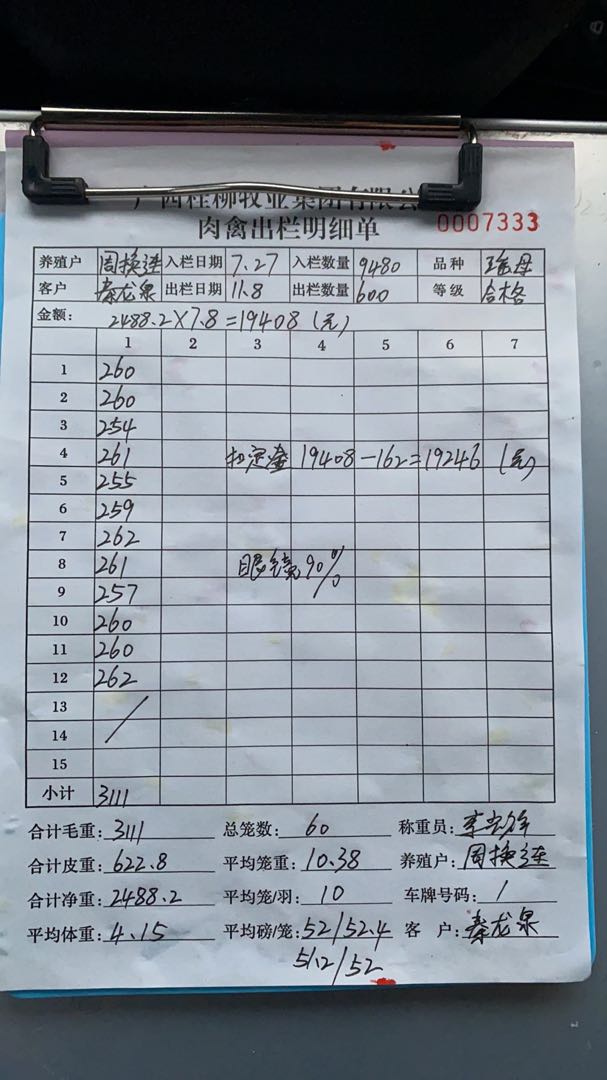 广西桂柳牧业集团有限公
肉禽出栏明细单 0007333
养殖户 周换连 入栏日期 7.27 入栏数量 9480 品种
客户 秦龙泉 出栏日期 11.8 出栏数量 600 等级 合格
金额: 2488.2×7.8=19408(元)
1 2 3 4 5 6 7
1 260
2 260
3 254
4 261 扣定金 19408-162=19246(元)
5 255
6 259
7 262
8 261 眼镜90%
9 257
10 260
11 260
12 262
13
14
15
小计 3111
合计毛重: 3111 总笼数: 60 称重员:
合计皮重: 622.8 平均笼重: 10.38 养殖户: 周换连
合计净重: 2488.2 平均笼/羽: 10 车牌号码: /
平均体重: 4.15 平均磅/笼: 52/52.4 客户: 秦龙泉
51.2/52